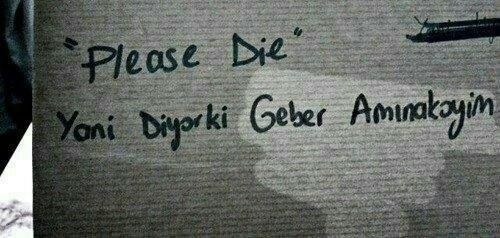 "Please Die"
Yani Diyorki Geber Amınakoyim